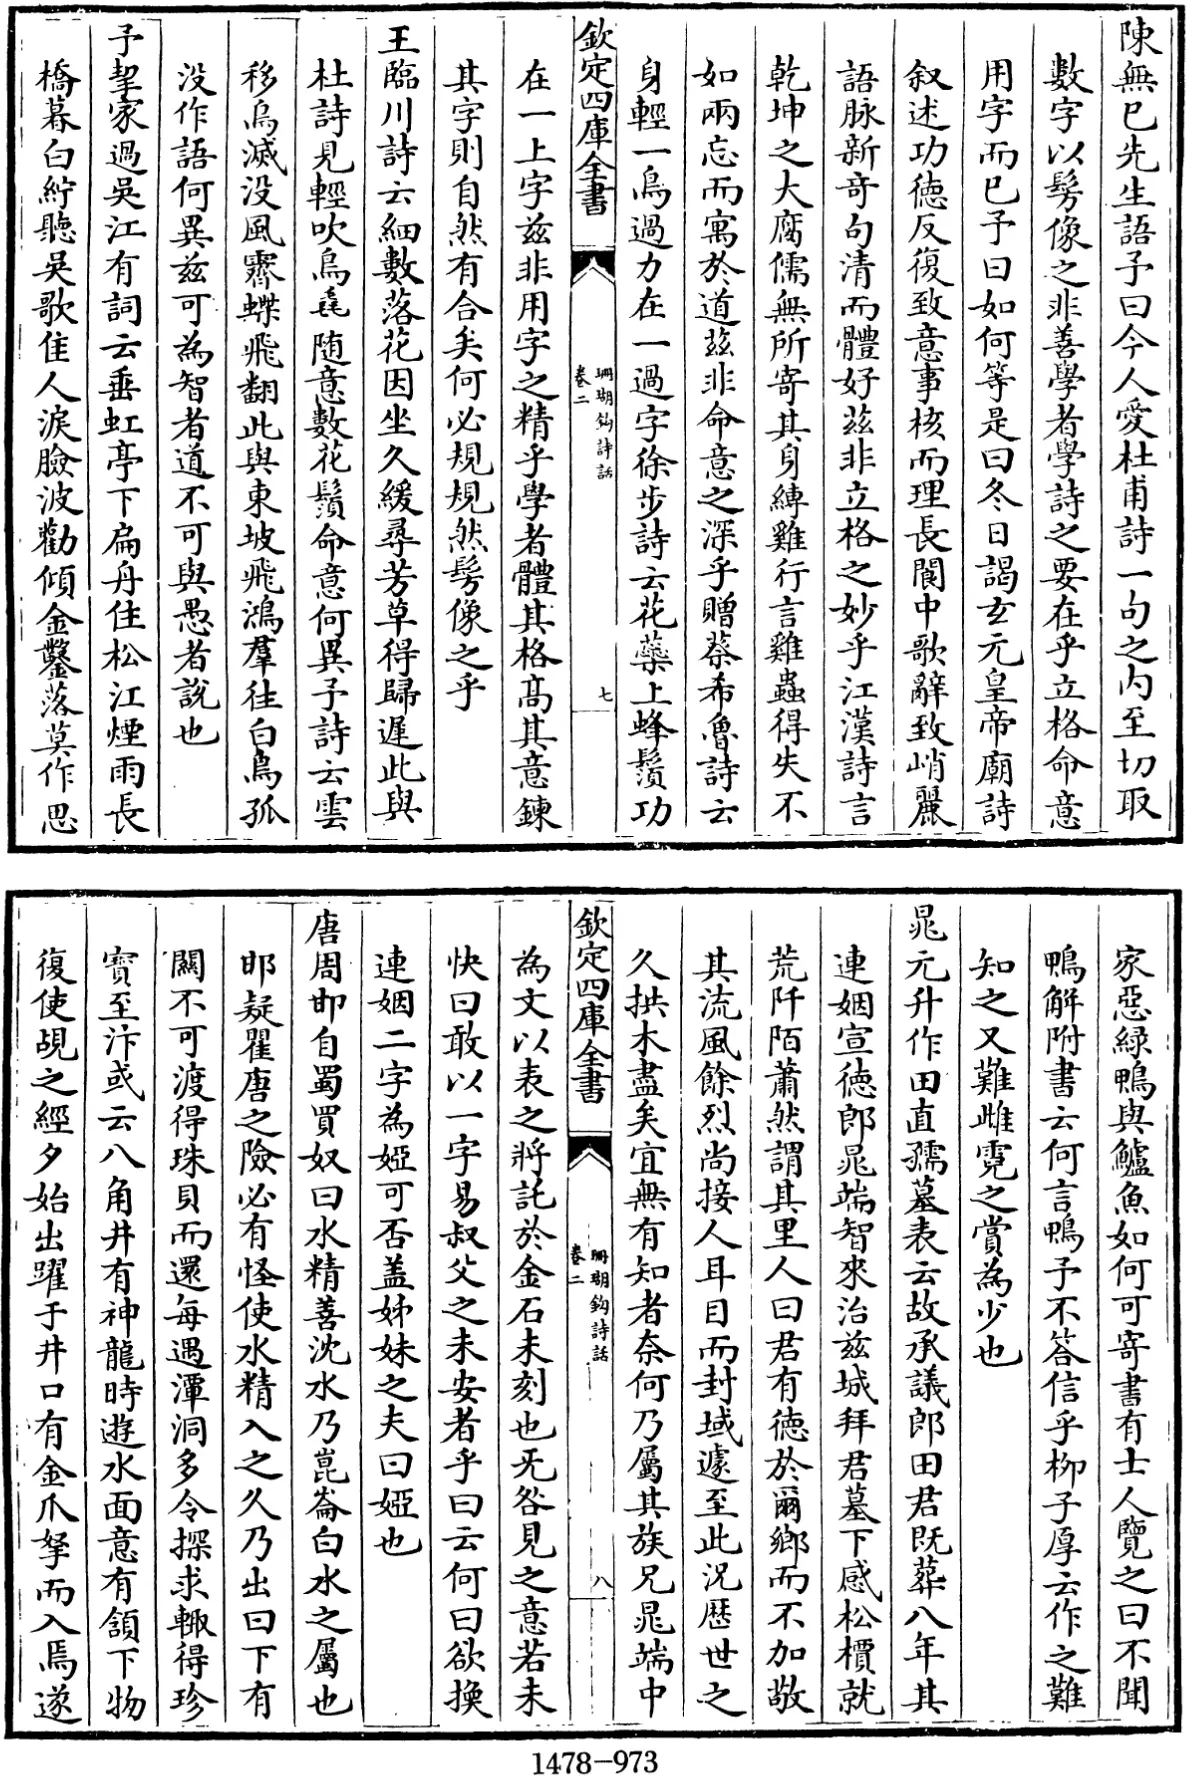 陳無已先生語予曰今人愛杜甫詩一句之内至切取
數字以髣像之非善學者學詩之要在乎立格命意
用字而已予曰如何等是曰冬日謁玄元皇帝廟詩
叙述功徳反復致意事核而理長閬中歌辭致峭麗
語脉新竒句清而體好兹非立格之妙乎江漢詩言
乾坤之大腐儒無所寄其身縛雞行言雞蟲得失不
如兩忘而寓於道兹非命意之深乎贈蔡希魯詩云
身輕一鳥過力在一過字徐步詩云花蘂上蜂鬚功
欽定四庫全書
珊瑚鈎詩話
卷二
七
在一上字兹非用字之精乎學者體其格髙其意鍊
其字則自然有合矣何必規規然髣像之乎
王臨川詩云細數落花因坐久緩尋芳草得歸遲此與
杜詩見輕吹鳥毳随意數花鬚命意何異予詩云雲
移鳥滅没風霽蝶飛翻此與東坡飛鴻羣往白鳥孤
没作語何異兹可為智者道不可與愚者說也
予挈家過吳江有詞云垂虹亭下扁舟住松江煙雨長
橋暮白紵聽吳歌佳人淚臉波勸傾金鑿落莫作思
家惡緑鴨與鱸魚如何可寄書有士人覽之曰不聞
鴨解附書云何言鴨予不答信乎栁子厚云作之難
知之又難雌霓之賞為少也
晁元升作田直孺墓表云故承議郎田君既葬八年其
連姻宣徳郎晁端智來治兹城拜君墓下感松檟就
荒阡陌蕭然謂其里人曰君有徳於爾鄉而不加敬
其流風餘烈尚接人耳目而封域遽至此况歴世之
久拱木盡矣宜無有知者奈何乃屬其族兄晁端中
欽定四庫全書
珊瑚鈎詩話
卷二
八
為文以表之將託於金石未刻也旡咎見之意若未
快曰敢以一字易叔父之未安者乎曰云何曰欲換
連姻二字為婭可否盖姊妹之夫曰婭也
唐周邯自蜀買奴曰水精善沈水乃崑崙白水之屬也
邯疑瞿唐之險必有怪使水精入之久乃出曰下有
闗不可渡得珠貝而還每遇潭洞多令探求輙得珍
寳至汴或云八角井有神龍時遊水面意有頷下物
復使覘之經夕始出躍于井口有金爪拏而入焉遂
1478—973